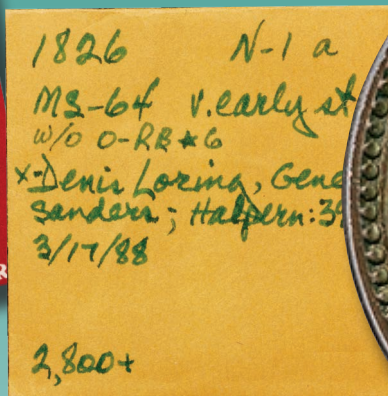 1826 N-1 a
MS-64 v.early st
W/O O-RB★6
x-Denis Loring, Gene
Sanders; Halpern:39
3/17/88
2,800+
R